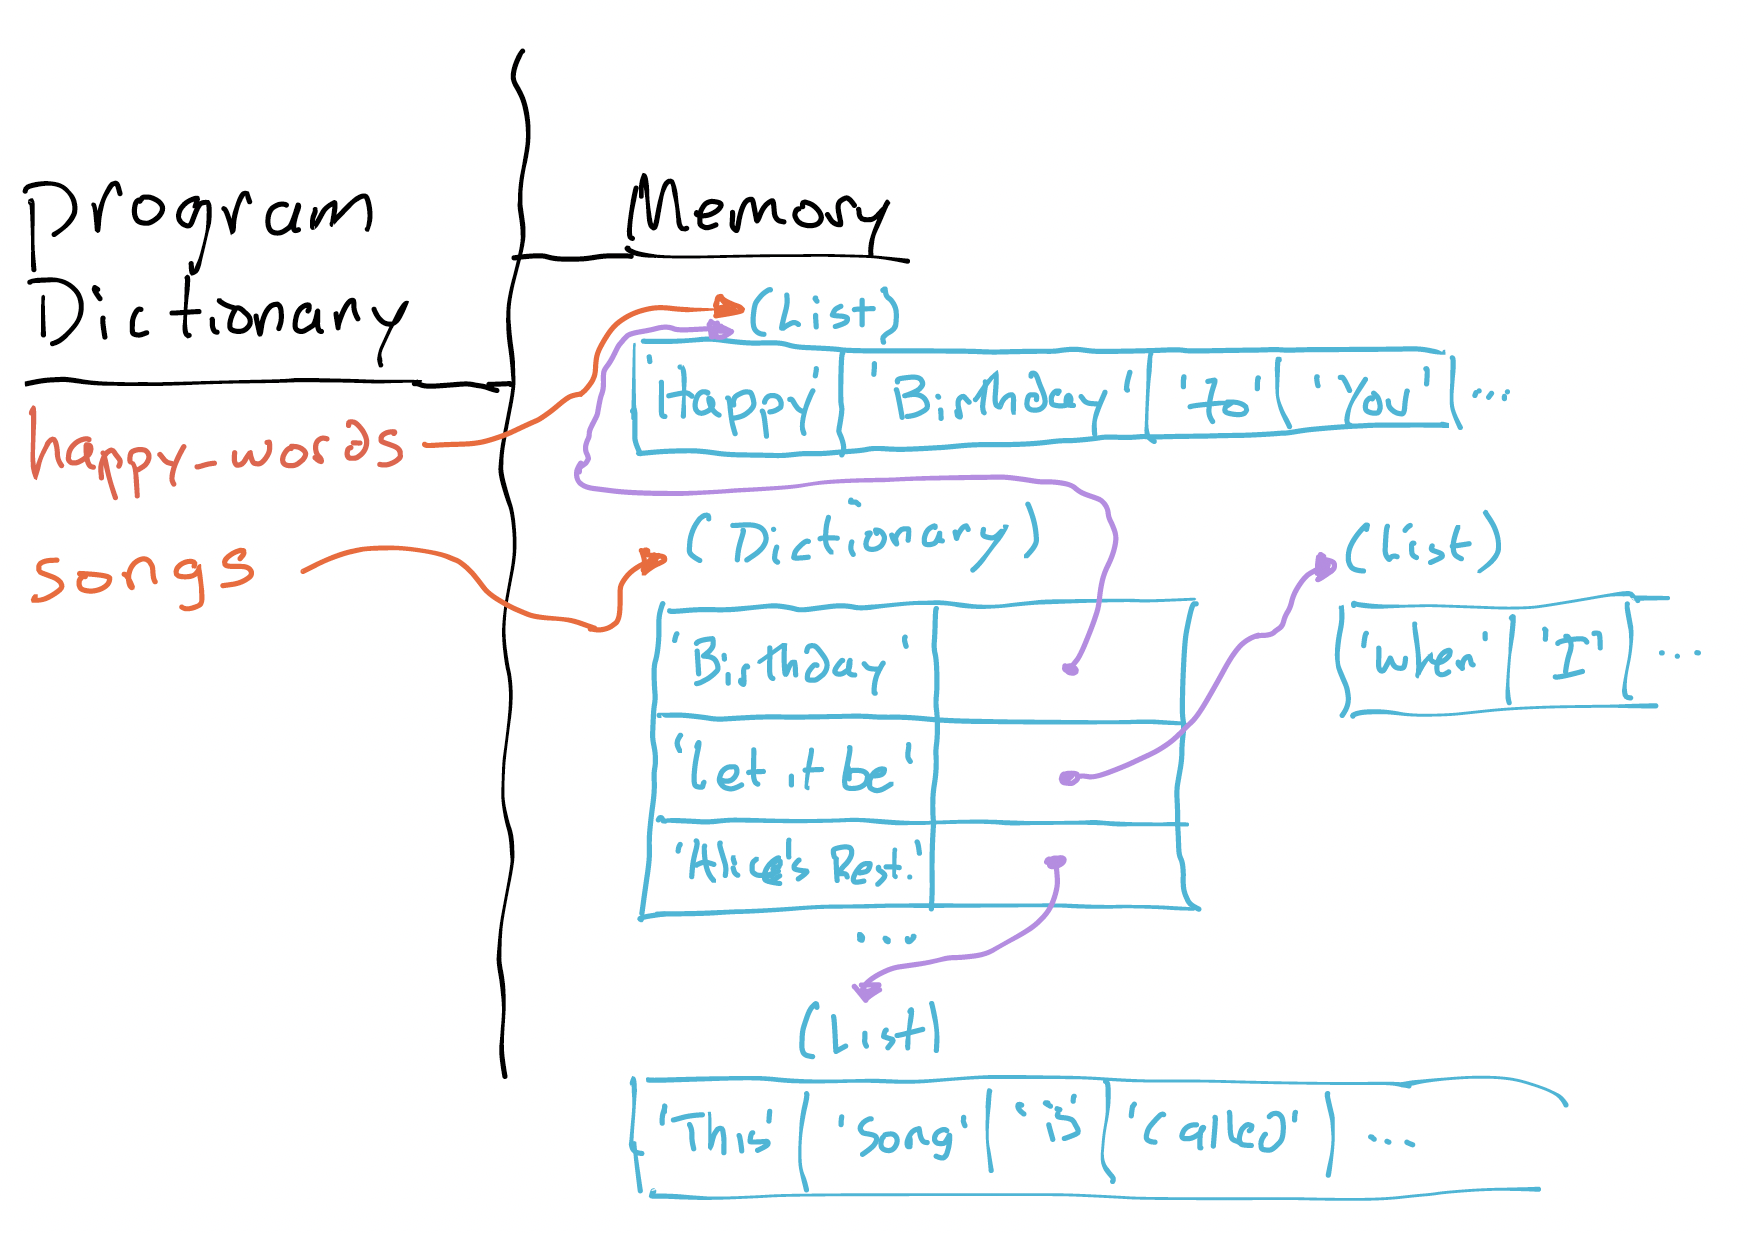 Program
Dictionary
Memory
happy-words
songs
(List)
'Happy' 'Birthday' 'to' 'You' ...
(Dictionary)
'Birthday'
'Let it be'
'Alice's Rest.'
...
(List)
'when' 'I' ...
(List)
'This' 'Song' 'is' 'Called' ...